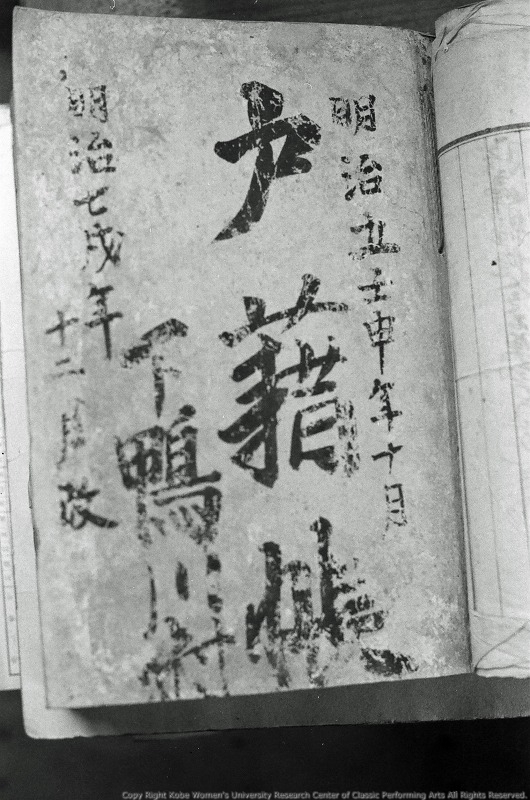 明治五壬申年十月
戸籍帳
下鴨川村
明治七戌年
十二月改
Copy Right Kobe Women's University Research Center of Classic Performing Arts All Rights Reserved.